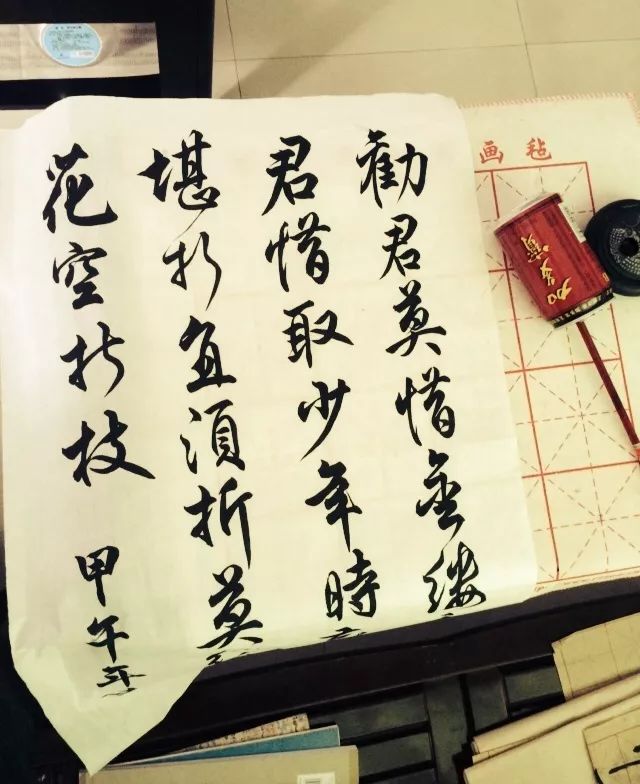 勸君莫惜金縷
君惜取少年時
堪折直須折莫
花空折枝
甲午年
画毡
加多寶